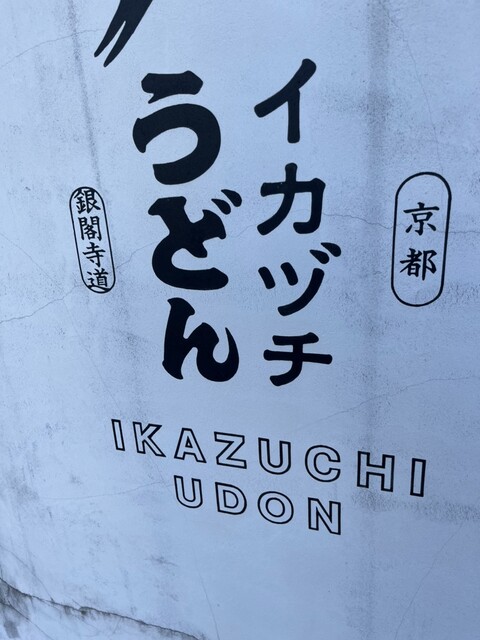 京都
イカヅチ
うどん
銀閣寺道
IKAZUCHI
UDON